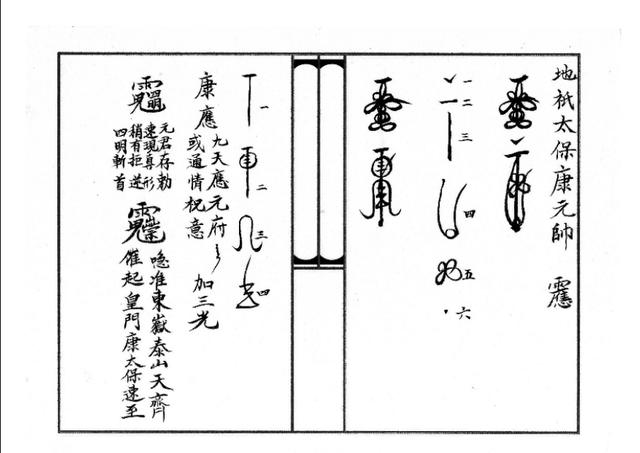 地祇太保康元帥
一二三四五六
一二三四
康應
九天應元府
或通情祝意
加三光
元君存勅
速現真形
稍有拒逆
四明斬首
准東嶽泰山天齊
催起皇門康太保速至